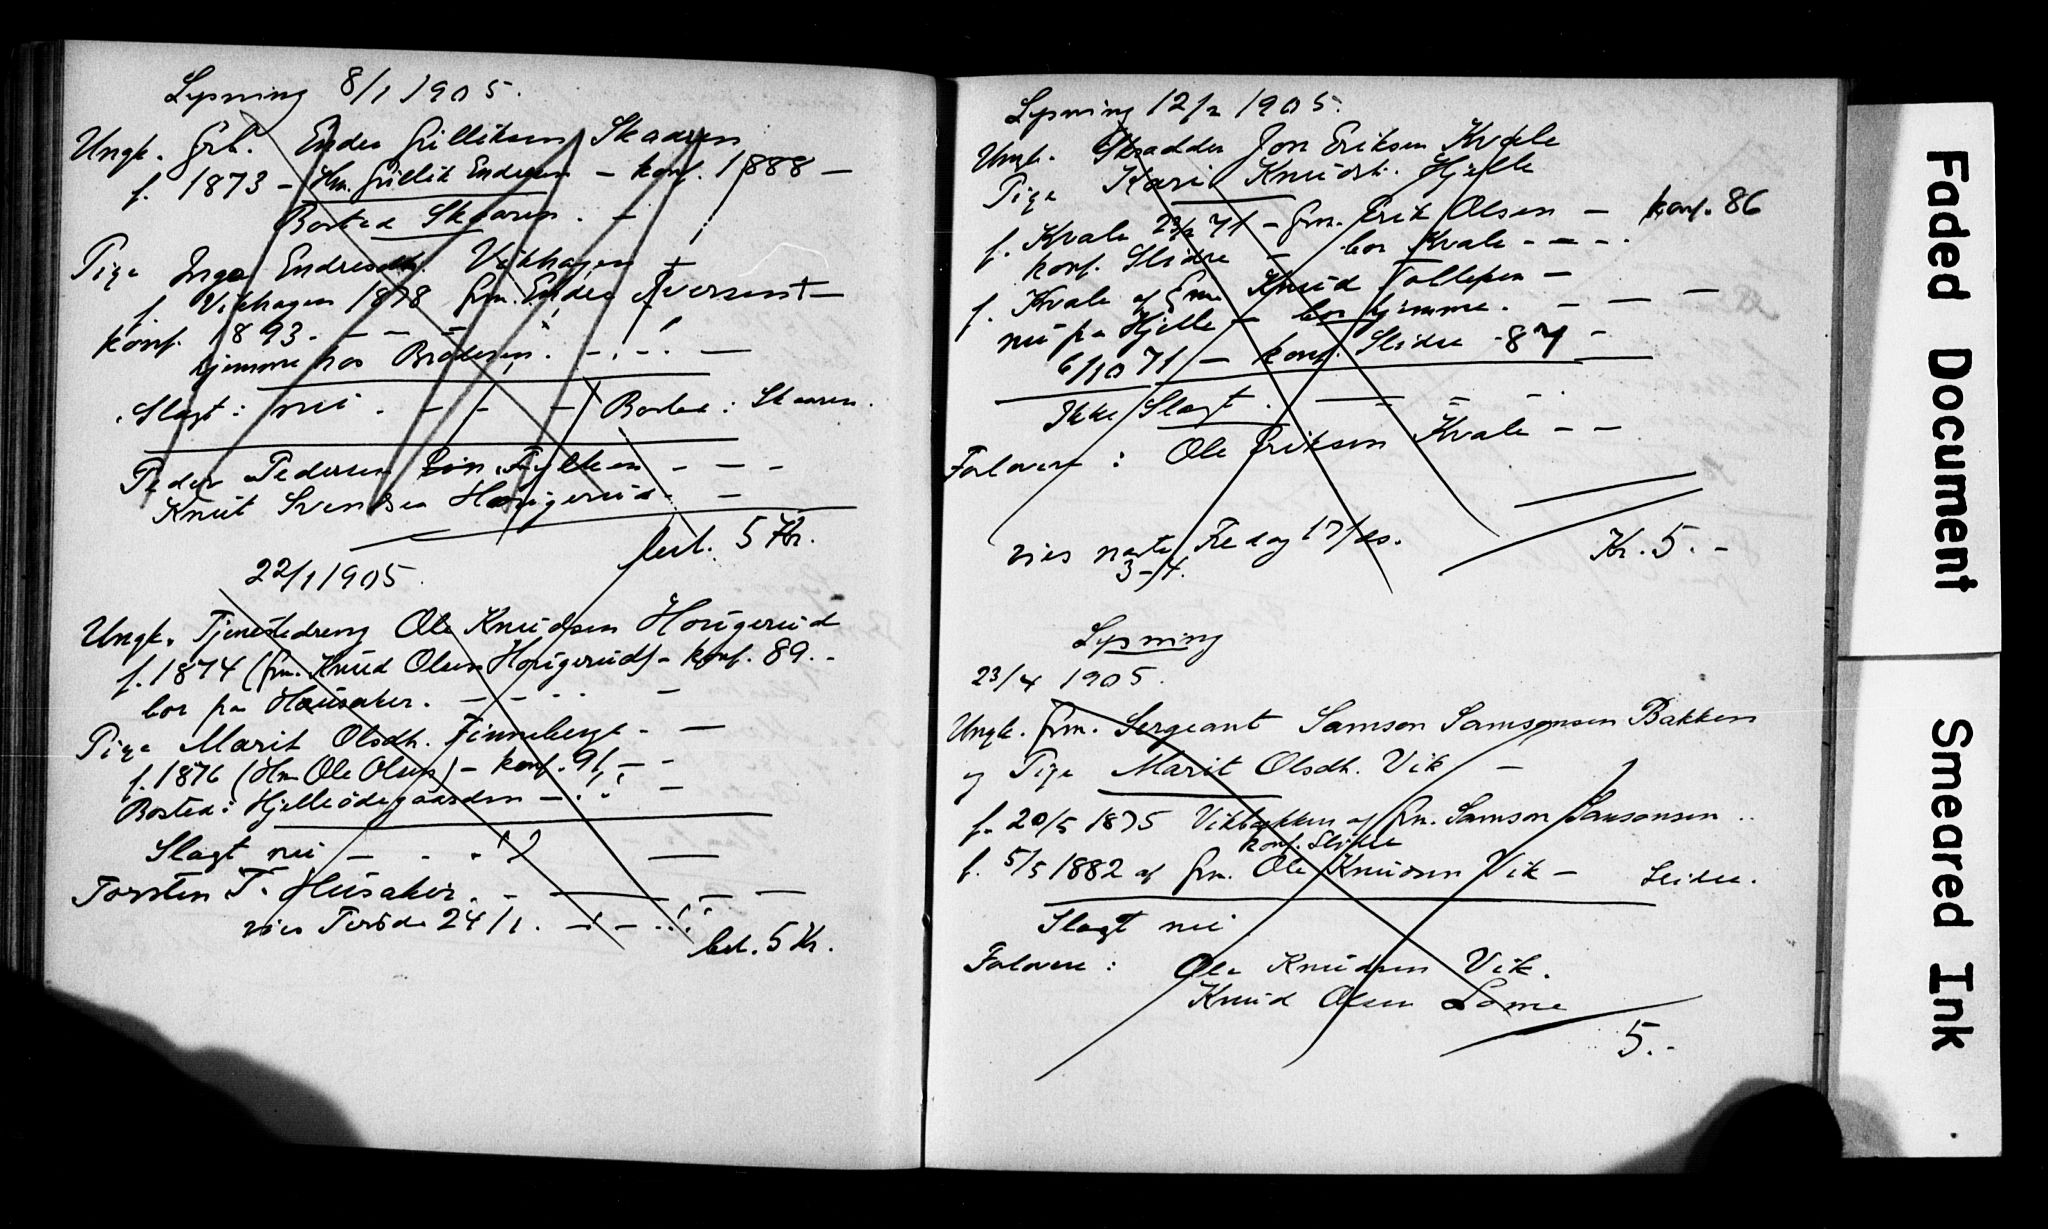 Lysning 8/1 1905.
Ungk. Grb. Endre Gulliksen Skaaren
f. 1873 - Hm. Gullik Endresen - konf. 1888 -
Bosted Skaaren. -
Pige Inga Endresdtr. Vikhagen
f. Vikhagen 1878 Grm. Endre Iversen -
konf. 1893. - - -
hjemme hos Broderen. - . - . -
Slægt: nei. - - - Bosted: Skaaren.
Peder Pedersen - - -
Knut Svendsen Hougerud. -
bet. 5 Kr.
22/1 1905.
Ungk. Tjenestedreng Ole Knudsen Hougerud
f. 1874 (Grm. Knud Olsen Hougerud) - konf. 89. -
bor på Hausaker. - - - -
Pige Marit Olsdtr. Finneberge. - -
f. 1876 (Hm Ole Olsen) - konf. 91. - -
Bosted: Hjelleødegaarden - -
Slægt nei - . . -
Torsten T. Husaker. - - - -
vies Tirsda 24/1. - - -
bet. 5 Kr.
Lysning 12/2 1905.
Ungk. Skrædder Jon Eriksen Kvale
Pige Kari Knudsd. Hjelle
f. Kvale 23/2 71 - Grm. Erik Olsen - konf. 86
konf. Slidre - bor Kvale - - -.
f. Kvale af Grm Knud Tollefsen -
nu på Hjelle - bor hjemme. - - -
6/10 71 - konf. Slidre - 87 -
Ikke Slægt. - - - -
Forlovere: Ole Eriksen Kvale - -
vies næste Fredag 17/ds.
3-4.
Kr. 5. -
Lysning
23/4 1905.
Ungk. Grm. Sergeant Samson Samsonsen Bakken
og Pige Marit Olsdtr. Vik -
f. 20/5 1875 Vikbakken af Grm. Samson Samsonsen ..
konf. Slidre
f. 5/5 1882 af Grm. Ole Knudsen Vik - Slidre.
Slægt nei
Forlovere: Ole Knudsen Vik.
Knud Olsen Lome
5. -
Faded Document
Smeared Ink